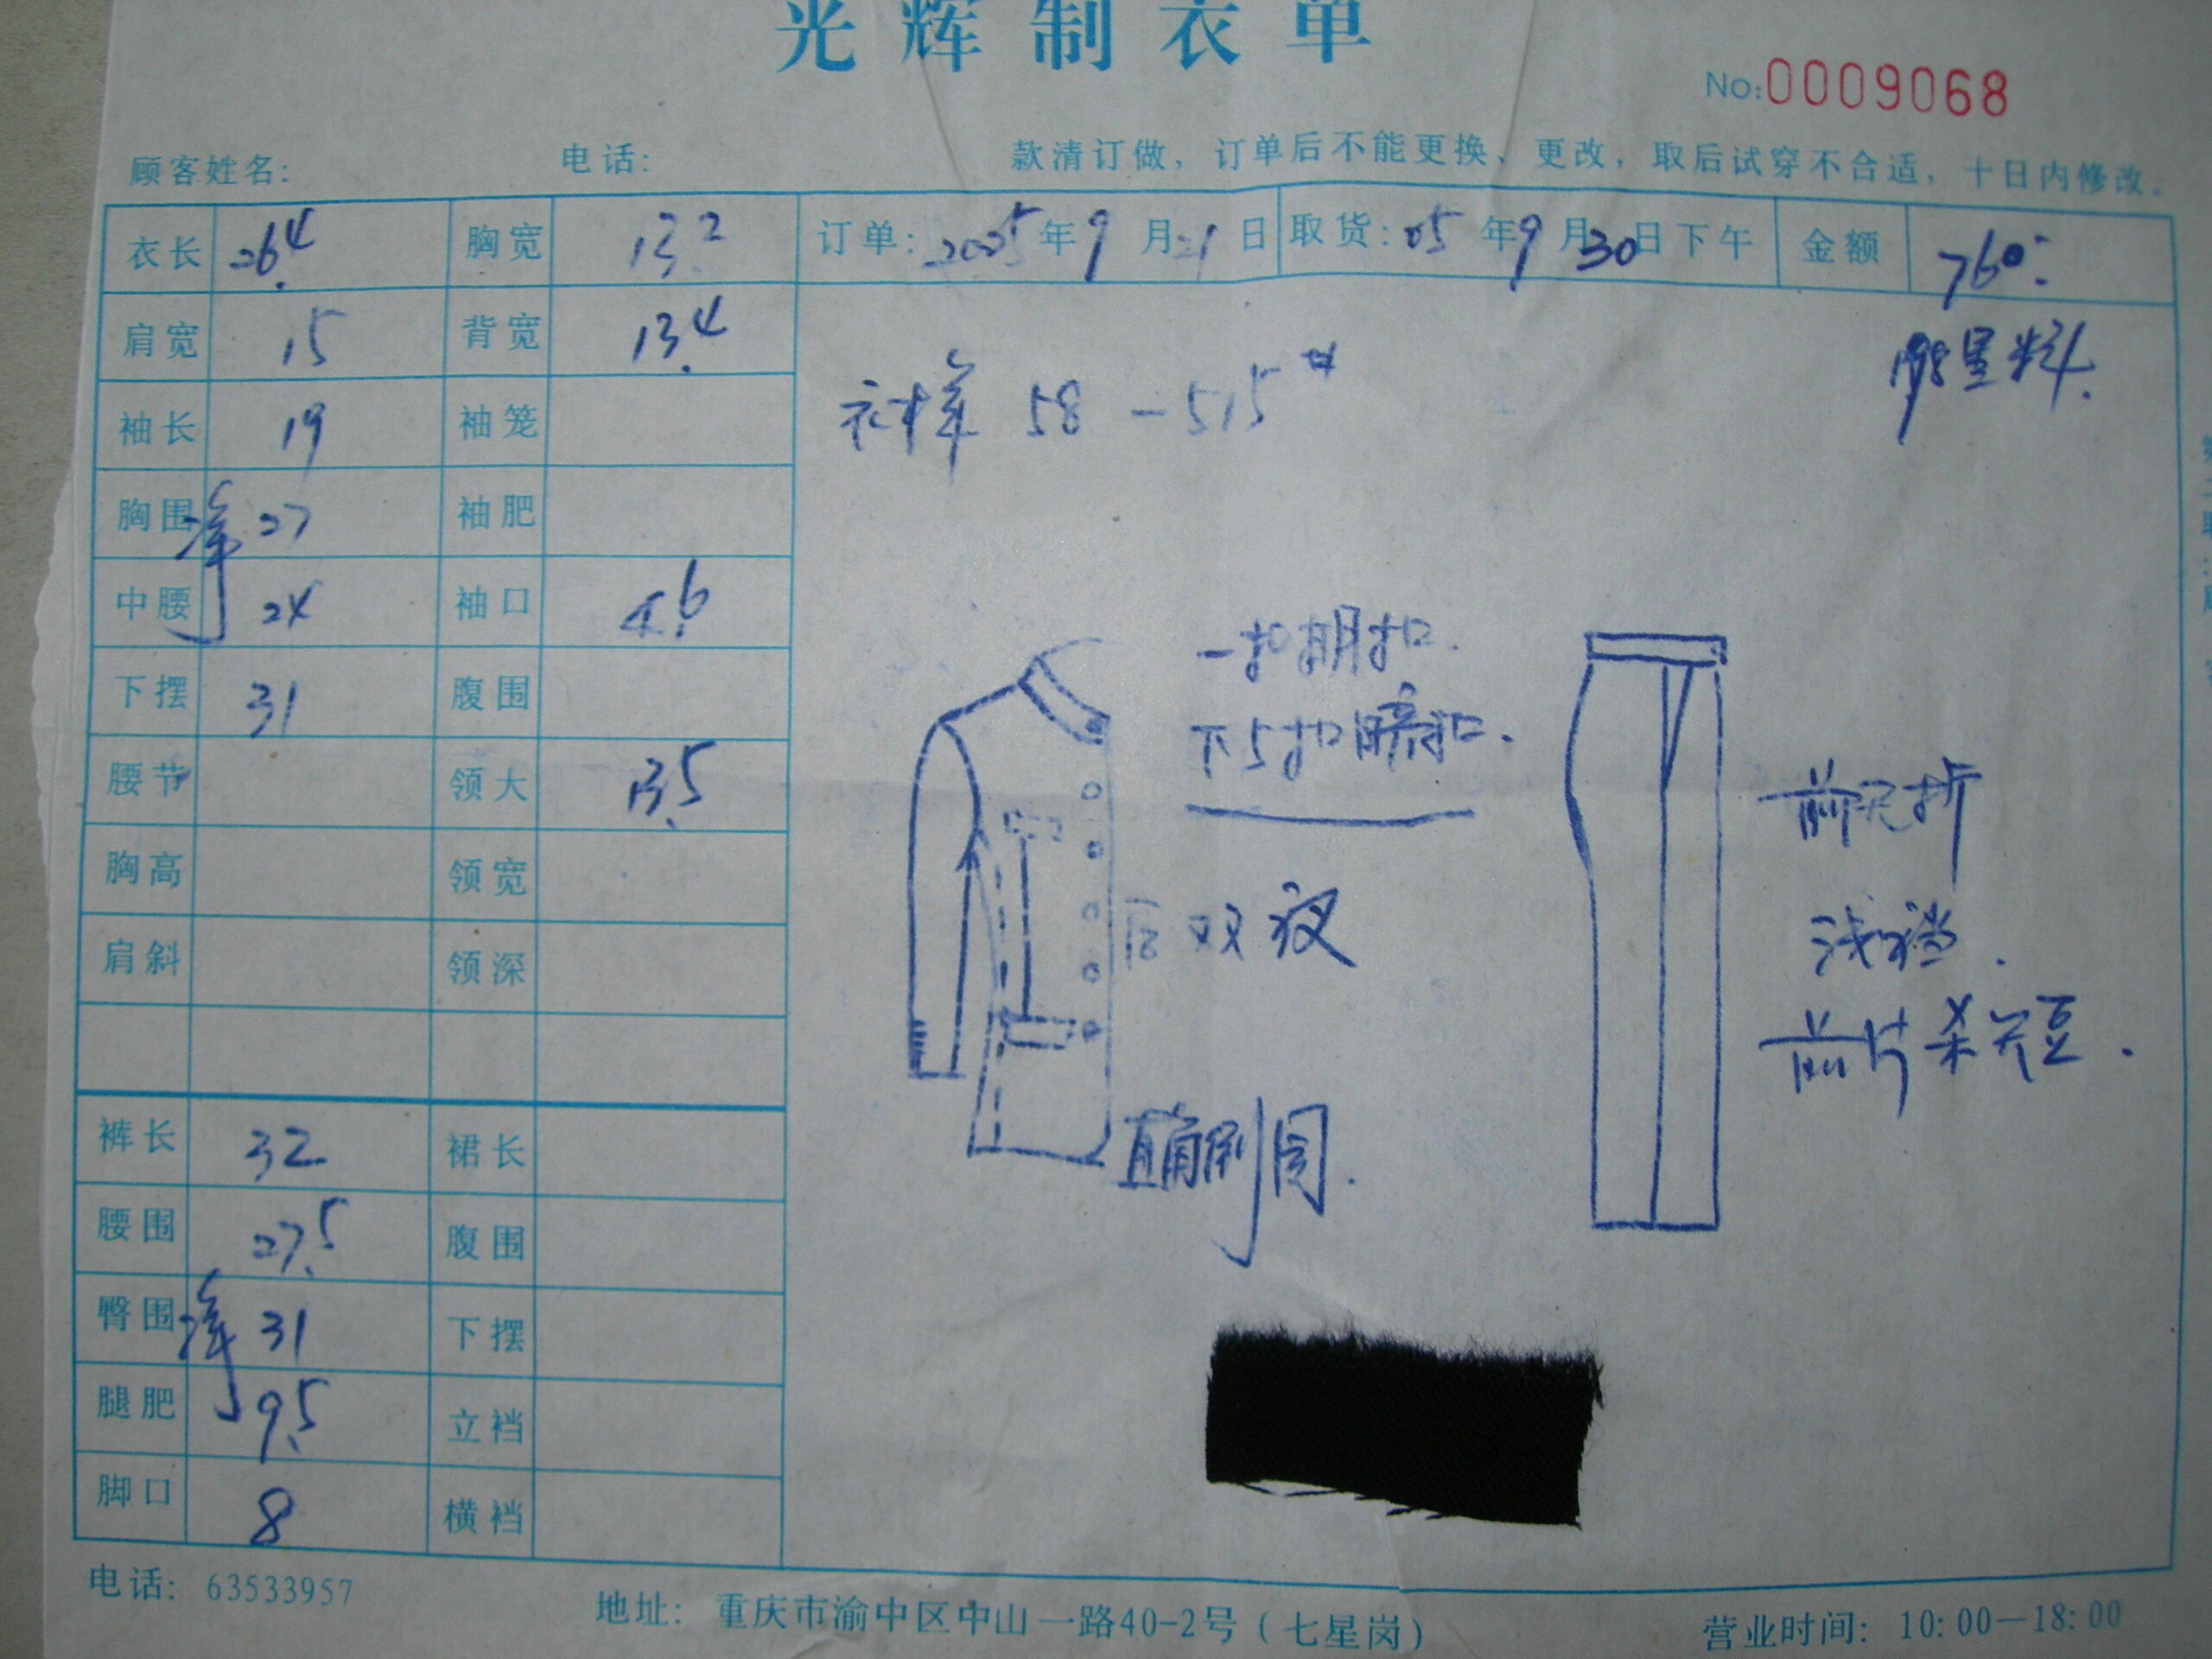 光辉制衣单
No:0009068
顾客姓名: 电话: 款清订做，订单后不能更换、更改，取后试穿不合适，十日内修改。
衣长 26.4 胸宽 13.2 订单: 2005年9月21日 取货: 05年9月30日下午 金额 760
肩宽 15 背宽 13.4
198 星料.
袖长 19 袖笼
衣样 58-515#
胸围 净 27 袖肥
中腰 24 袖口 4.6
一扣明扣.
下摆 31 腹围
下5扣暗扣.
腰节 领大 13.5
前无折
胸高 领宽
后双衩
浅裆.
肩斜 领深
前片
直角
裤长 32 裙长
腰围 27.5 腹围
臀围 净 31 下摆
腿肥 9.5 立裆
脚口 8 横裆
电话: 63533957 地址: 重庆市渝中区中山一路40-2号(七星岗) 营业时间: 10:00-18:00